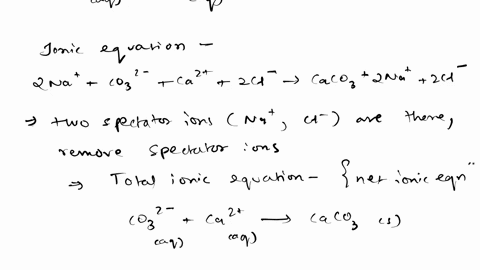 (aq)
Ionic equation -
2Na⁺ + CO₃²⁻ + Ca²⁺ + 2Cl⁻ → CaCO₃ + 2Na⁺ + 2Cl⁻
⇒ two spectator ions (Na⁺, Cl⁻) are there,
remove spectator ions
⇒ Total ionic equation - {net ionic eqn"
CO₃²⁻ + Ca²⁺ → CaCO₃ (s)
(aq) (aq)